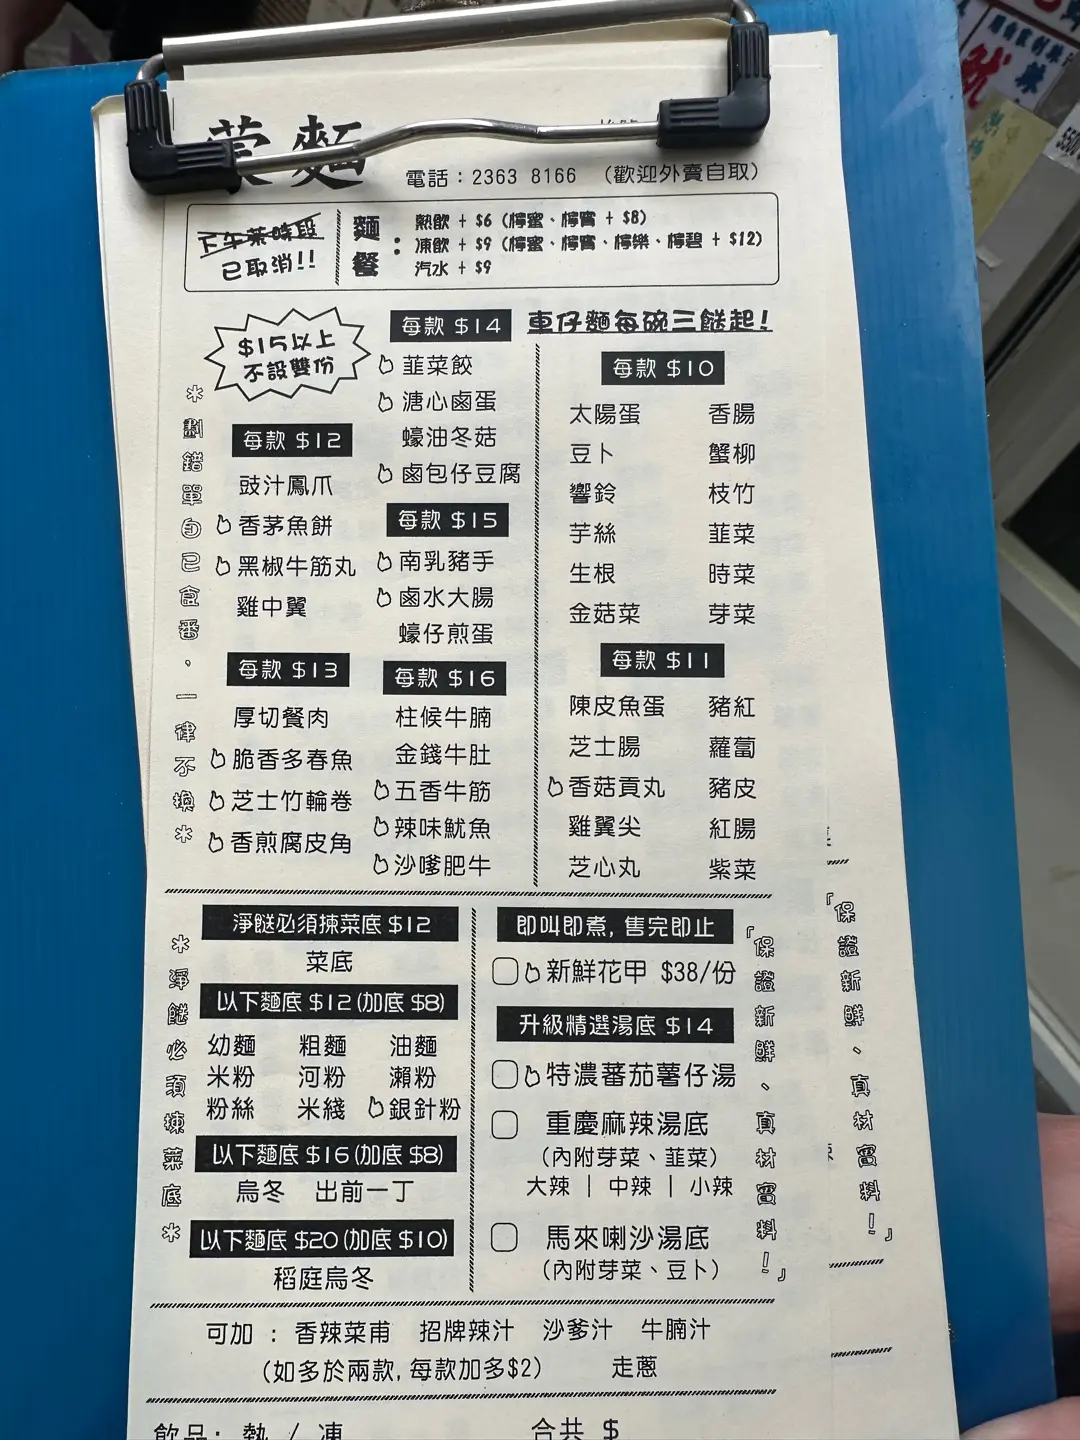 麵
電話：2363 8166 （歡迎外賣自取）
下午茶時段
已取消!!
麵餐：
熱飲 + $6 (檸蜜、檸賓 + $8)
凍飲 + $9 (檸蜜、檸賓、檸樂、檸碧 + $12)
汽水 + $9
$15以上
不設雙份
*劃錯單自己食番，一律不換*
每款 $12
豉汁鳳爪
香茅魚餅
黑椒牛筋丸
雞中翼
每款 $13
厚切餐肉
脆香多春魚
芝士竹輪卷
香煎腐皮角
每款 $14
韮菜餃
溏心鹵蛋
蠔油冬菇
鹵包仔豆腐
每款 $15
南乳豬手
鹵水大腸
蠔仔煎蛋
每款 $16
柱候牛腩
金錢牛肚
五香牛筋
辣味魷魚
沙嗲肥牛
車仔麵每碗三餸起!
每款 $10
太陽蛋 香腸
豆卜 蟹柳
響鈴 枝竹
芋絲 韮菜
生根 時菜
金菇菜 芽菜
每款 $11
陳皮魚蛋 豬紅
芝士腸 蘿蔔
香菇貢丸 豬皮
雞翼尖 紅腸
芝心丸 紫菜
*淨餸必須揀菜底*
淨餸必須揀菜底 $12
菜底
以下麵底 $12 (加底 $8)
幼麵 粗麵 油麵
米粉 河粉 瀨粉
粉絲 米綫 銀針粉
以下麵底 $16 (加底 $8)
烏冬 出前一丁
以下麵底 $20 (加底 $10)
稻庭烏冬
即叫即煮, 售完即止
新鮮花甲 $38/份
升級精選湯底 $14
特濃蕃茄薯仔湯
重慶麻辣湯底
（內附芽菜、韮菜）
大辣 | 中辣 | 小辣
馬來喇沙湯底
（內附芽菜、豆卜）
「保證新鮮、真材實料！」
「保證新鮮、真材實料！」
可加 : 香辣菜甫 招牌辣汁 沙爹汁 牛腩汁
（如多於兩款, 每款加多$2） 走蔥
飲品: 熱 / 凍 合共 $